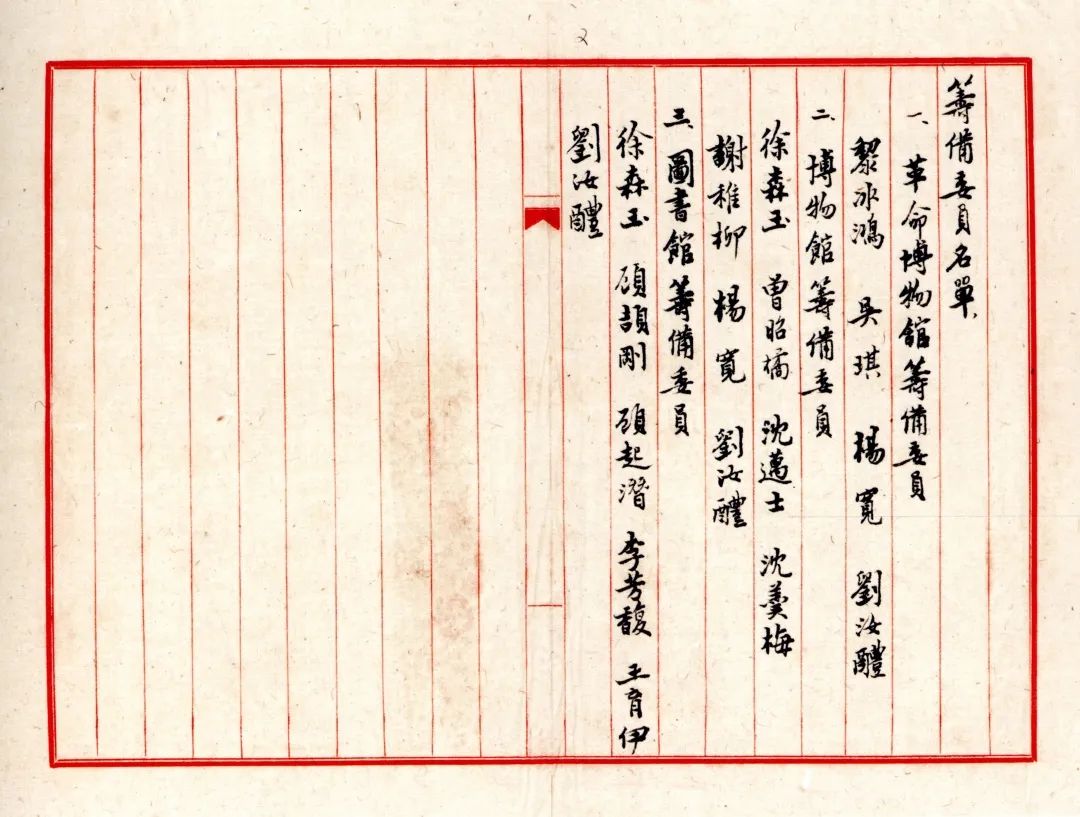 2
籌備委員名單、
一、革命博物館籌備委員
黎冰鴻 吳琪 楊寬 劉汝醴
二、博物館籌備委員
徐森玉 曾昭橘 沈邁士 沈羹梅
謝稚柳 楊寬 劉汝醴
三、圖書館籌備委員
徐森玉 顧頡剛 顧起潛 李芳馥 王育伊
劉汝醴